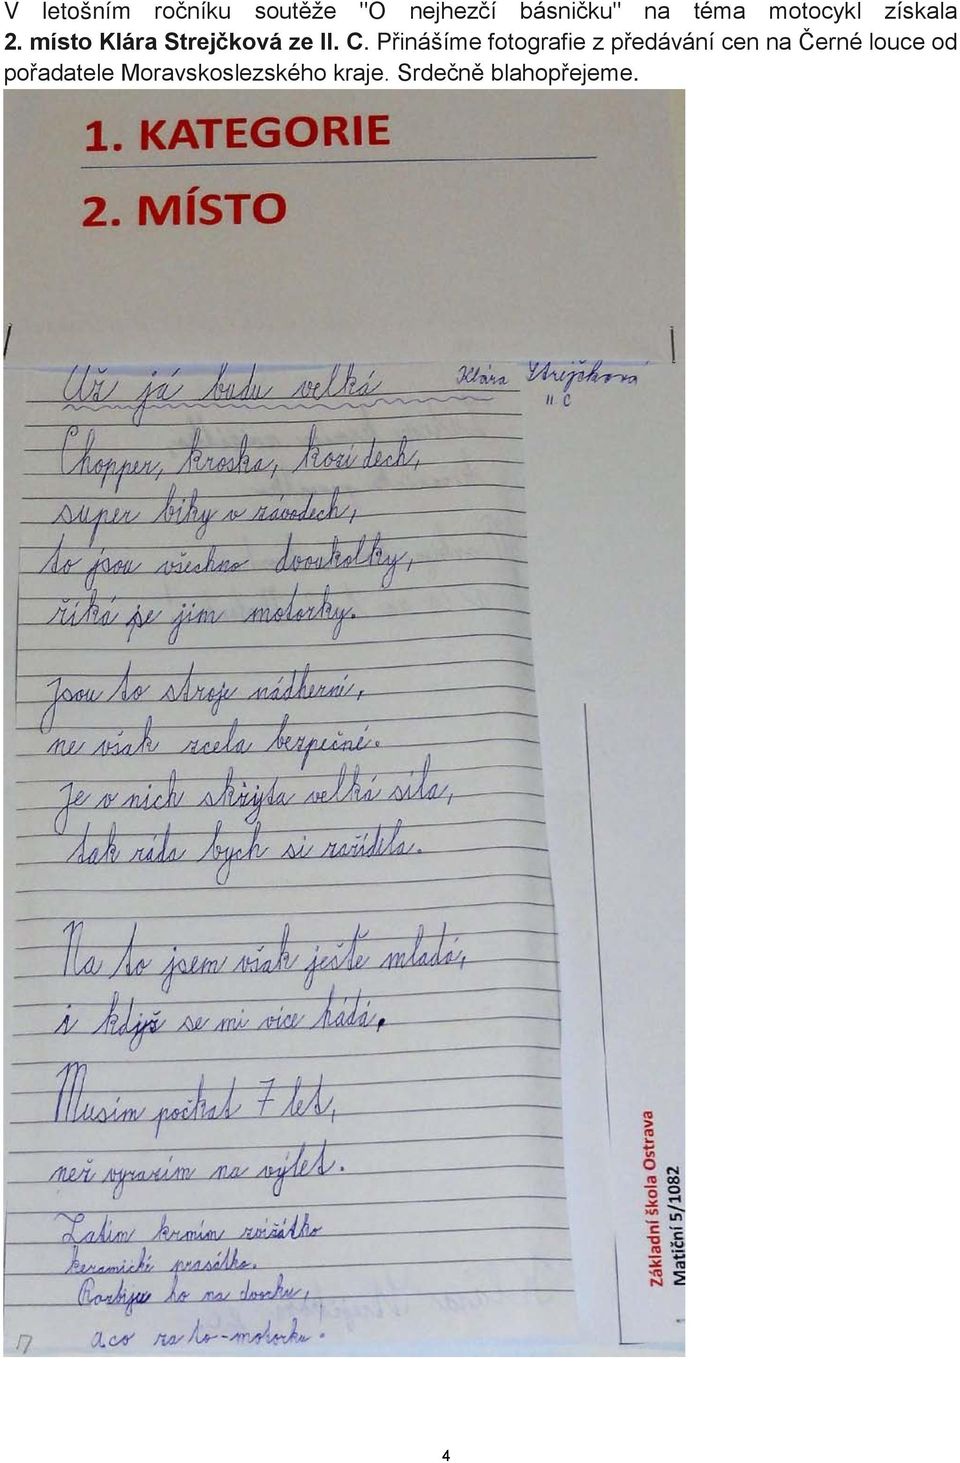 V letošním ročníku soutěže "O nejhezčí básničku" na téma motocykl získala
2. místo Klára Strejčková ze II. C. Přinášíme fotografie z předávání cen na Černé louce od
pořadatele Moravskoslezského kraje. Srdečně blahopřejeme.
1. KATEGORIE
2. MÍSTO
Už já budu velká Klára Strejčková
II. C
Chopper, kroska, kozí dech,
super biky v závodech,
to jsou všechno dvoukolky,
říká se jim motorky.
Jsou to stroje nádherní,
ne však zcela bezpečné.
Je v nich skrýta velká síla,
tak ráda bych si zařídila.
Na to jsem však ještě mladá,
i když se mi více hádá.
Musím počkat 7 let,
než vyrazím na výlet.
Zatím krmím zvířátko
keramické prasátko.
Rozbiju ho na dvorku,
a co za to - motorku.
Základní škola Ostrava
Matiční 5/1082
4